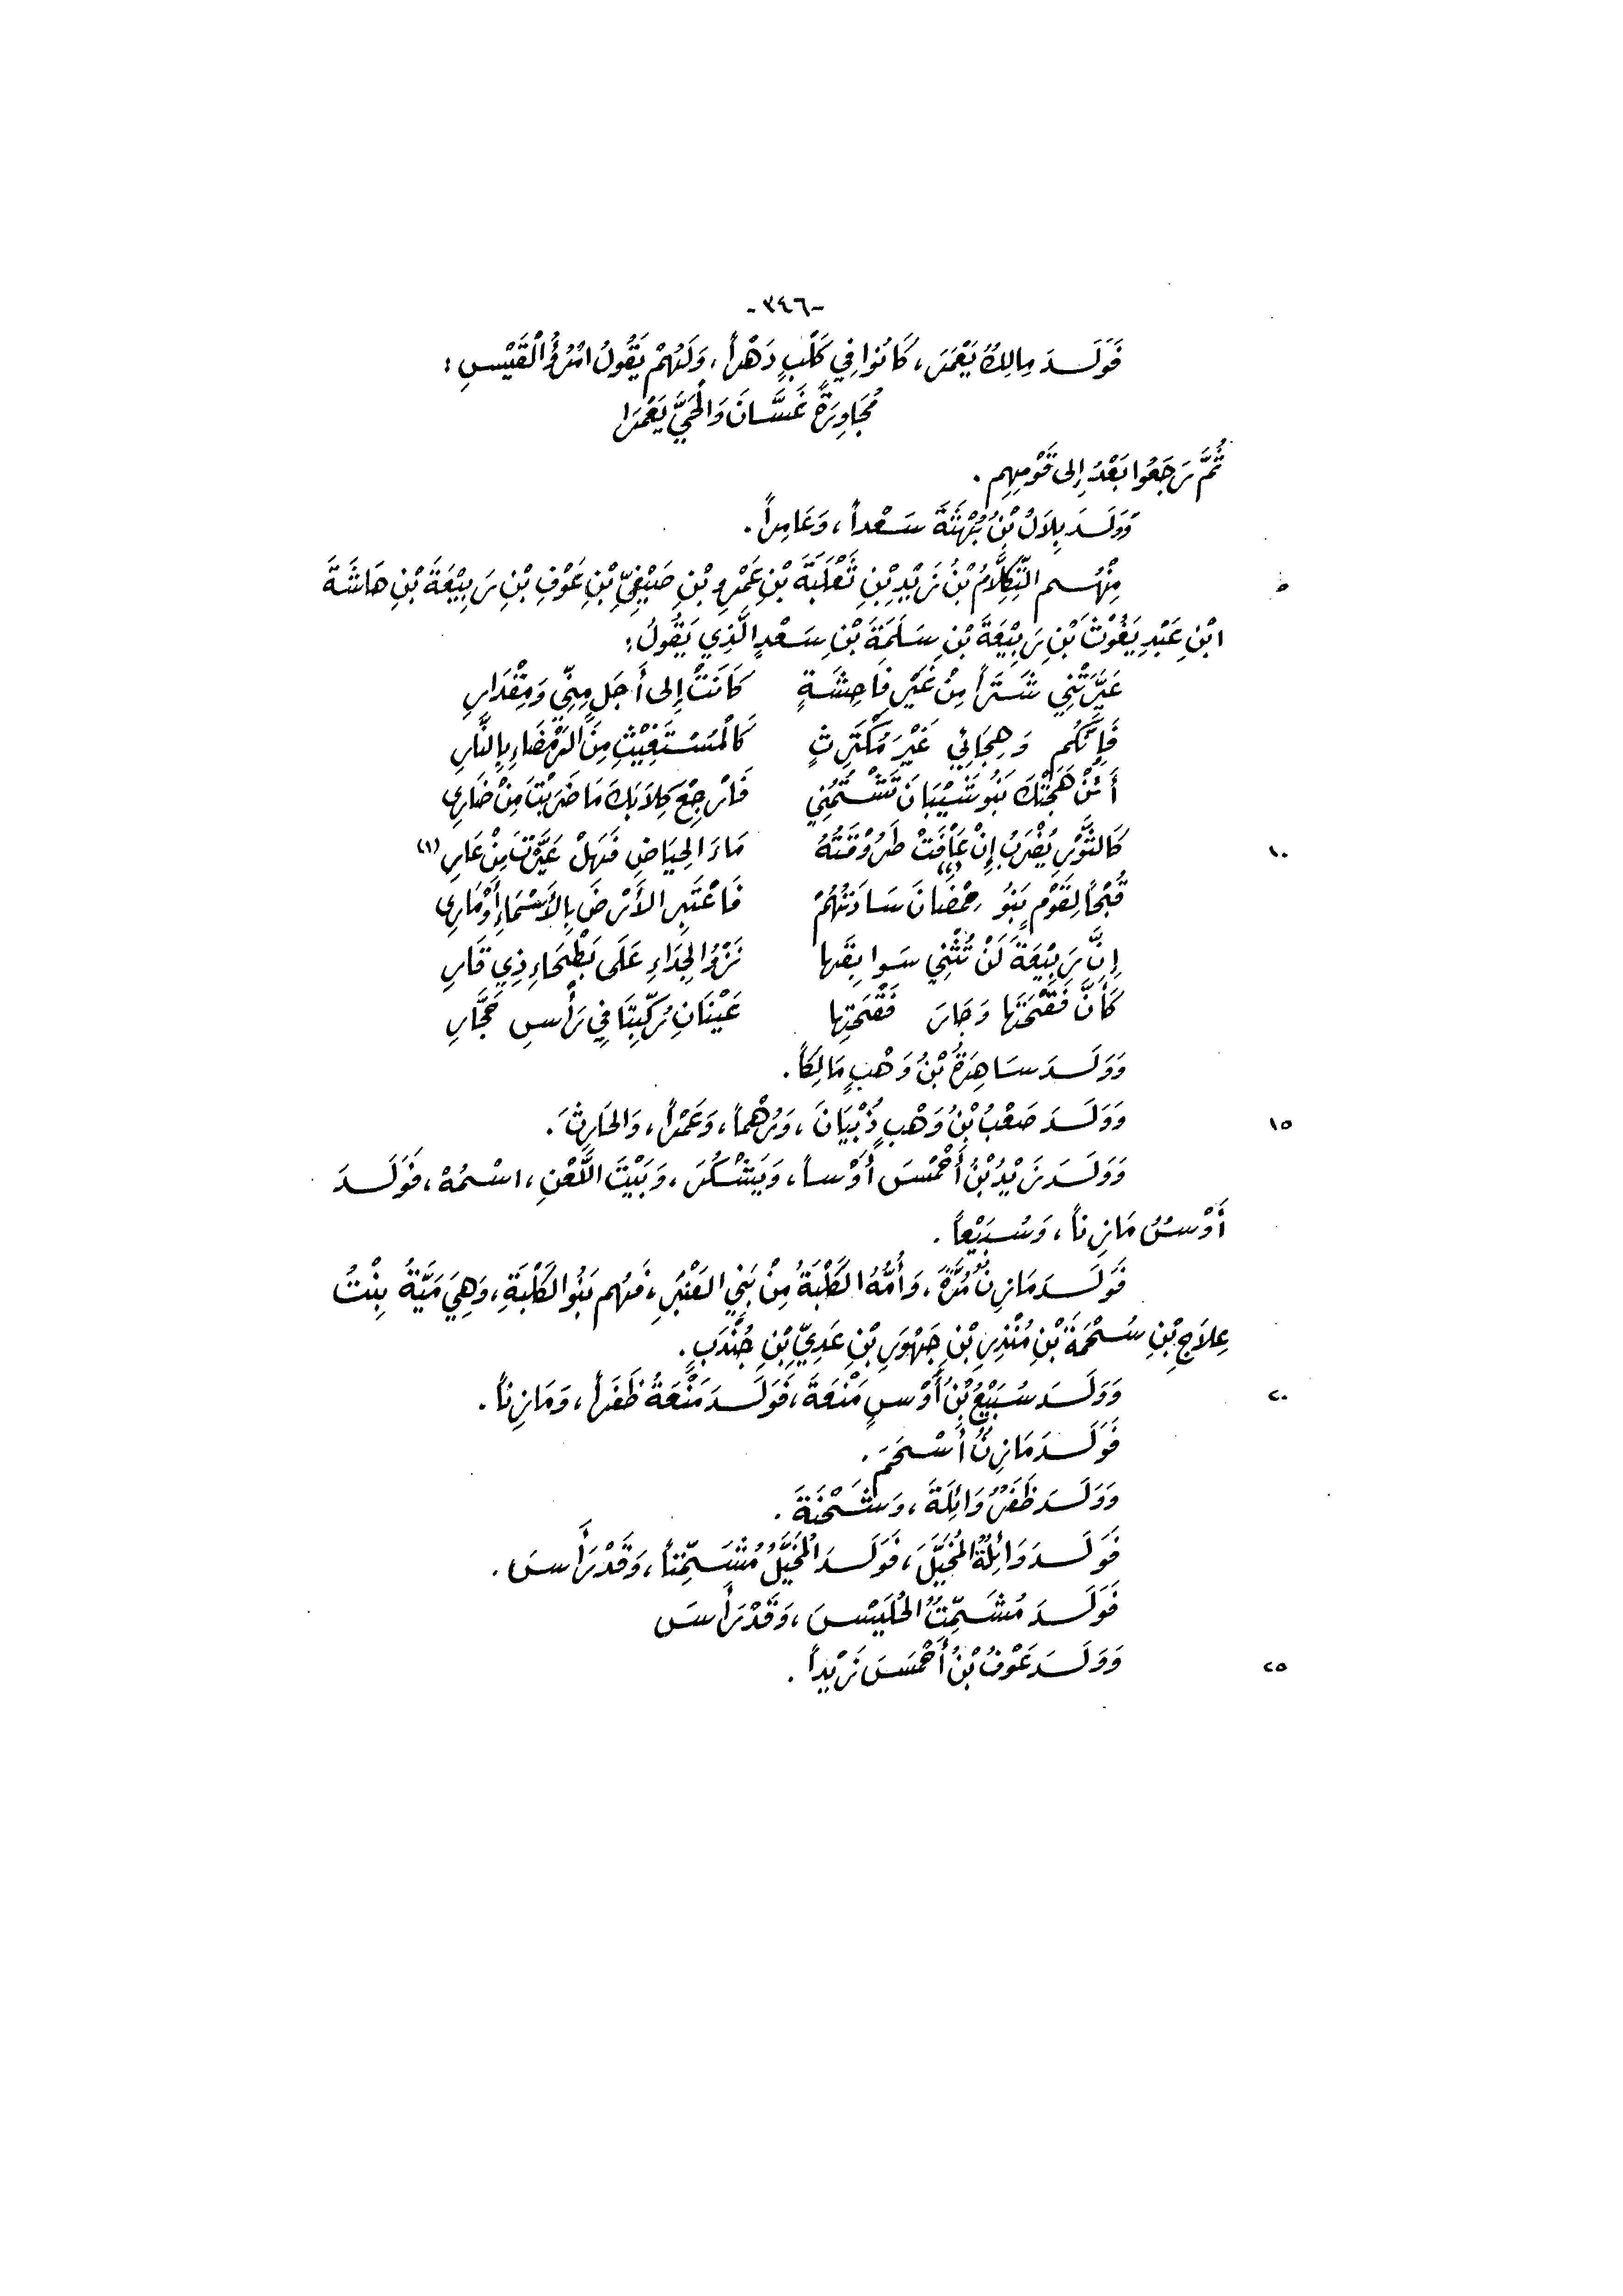 -٣٤٦-
فَوَلَدَ مالِكٌ يَعْمَرَ، كَانُوا فِي كَلْبٍ دَهْراً، وَلَهُمْ يَقُولُ امْرُؤُ الْقَيْسِ:
مُجَاوِرَةً غَسَّانَ وَالْحَيَّ يَعْمَرَا
ثُمَّ رَجَعُوا بَعْدُ إلى قَوْمِهِم.
وَوَلَدَ بِلَالُ بْنُ بُهْثَةَ سَعْداً، وَعَامِراً.
مِنْهُم التِّكِلَّامُ بْنُ زَيْدِ بْنِ ثَعْلَبَةَ بْنِ عَمْرِو بْنِ صَيْفِيِّ بْنِ عَوْفِ بْنِ رَبِيْعَةَ بْنِ هَاشَةَ ٥
ابْنِ عَبْدِ يَغُوْثَ بْنِ رَبِيْعَةَ بْنِ سَلَمَةَ بْنِ سَعْدٍ الَّذِي يَقُولُ:
عَيَّرْتَنِي شَتَراً مِنْ غَيْرِ فَاحِشَةٍ كَانَتْ إلى أَجَلٍ مِنِّي وَمِقْدَارِ
فَإِنَّكُم وَهِجَائِي غَيْرَ مُكْتَرِثٍ كَالْمُسْتَغِيْثِ مِنَ الرَّمْضَاءِ بِالنَّارِ
أَئنْ هَجَتْكَ بَنُو شَيْبَانَ تَشْتُمُنِي فَارْجِعْ كِلَابَكَ مَا ضَرَبْتَ مِنْ ضَارِي
كَالثَّوْرِ يُضْرَبُ إنْ عَافَتْ طَرُوْقَتُهُ مَاءَ الحِيَاضِ فَهَلْ عَيَّرْتَ مِنْ عَارِ (١) ١٠
قُبْحًا لِقَوْمٍ بَنُو حِمْضَانَ سَادَتُهُمْ فَاعْتَبِرِ الأَرْضَ بِالأَسْمَاءِ أَوْ مَارِي
إِنَّ رَبِيْعَةَ لَنْ تُثْنِي سَوابِقَها نَزْوُ الجِدَاءِ عَلَى بَطْحَاءِ ذِي قَارِ
كَأَنَّ فَقْحَتَها وَجَارَ فَقْحَتِها عَيْنَانِ رُكِّبَتَا فِي رَأْسِ حَجَّارِ
وَوَلَدَ سَاهِرَةُ بْنُ وَهْبٍ مَالِكاً.
وَوَلَدَ صَعْبُ بْنُ وَهْبٍ ذُبْيَانَ، وَرُهْماً، وَعَمْراً، وَالحَارِثَ. ١٥
وَوَلَدَ زَيْدُ بْنُ أَحْمَسَ أَوْساً، وَيَشْكُرَ، وَبَيْتَ اللَّعْنِ، اسْمُهُ، فَوَلَدَ
أَوْسٌ مَازِناً، وَسُبَيْعاً.
فَوَلَدَ مَازِنٌ مُرَّةَ، وَأُمُّهُ الكَلْبَةُ مِنْ بَنِي العَنْبَرِ، فَهُم بَنُو الكَلْبَةِ، وَهِيَ مَيَّةُ بِنْتُ
عِلَاجِ بْنِ سُحْمَةَ بْنِ مُنْذِرِ بْنِ جَهْوَرِ بْنِ عَدِيِّ بْنِ جُنْدَبٍ.
وَوَلَدَ سُبَيْعُ بْنُ أَوْسٍ مَنْعَةَ، فَوَلَدَ مَنْعَةُ ظَفَراً، وَمَازِناً. ٢٠
فَوَلَدَ مَازِنٌ أَسْحَمَ.
وَوَلَدَ ظَفَرٌ وَائِلَةَ، وَشَحْنَةَ.
فَوَلَدَ وَائِلَةُ المُخَيَّلَ، فَوَلَدَ المُخَيَّلُ مُشَمِّتاً، وَقَدْ رَأَسَ.
فَوَلَدَ مُشَمِّتٌ الحُلَيْسَ، وَقَدْ رَأَسَ
وَوَلَدَ عَوْفُ بْنُ أَحْمَسَ زَيْداً. ٢٥